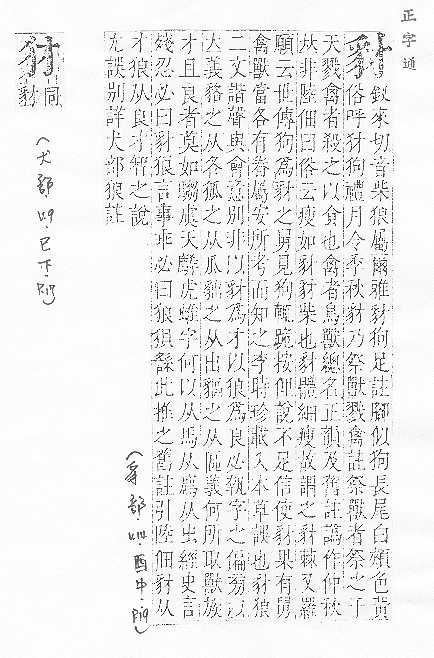 正字通
豺
釵來切音柴狼屬爾雅豺狗足註腳似狗長尾白頰色黃
俗呼豺狗禮月令季秋豺乃祭獸戮禽註祭獸者祭之于
天戮禽者殺之以食也禽者鳥獸總名正韻及舊註譌作仲秋
𠀤非陸佃曰俗云瘦如豺豺柴也豺體細瘦故謂之豺棘又羅
願云世傳狗為豺之舅見狗輒跪按佃說不足信使豺果有舅
禽獸當各有眷屬安所考而知之李時珍載入本草誤也豺狼
二文諧聲與會意別非以豺為才以狼為良必執字之偏旁以
大義貉之从各狐之从瓜貓之从出貙之从區義何所取獸族
才且良者莫如騶虞天麟虎 字何以从馬从鹿从出經史言
殘忍必曰豺狼言事乖必曰狼狽繇此推之舊註引陸佃豺从
才狼从良才智之說
尢誤別詳犬部狼註
犲
同
豺
(犬部.四.巳下.
(豸部.四.酉中.